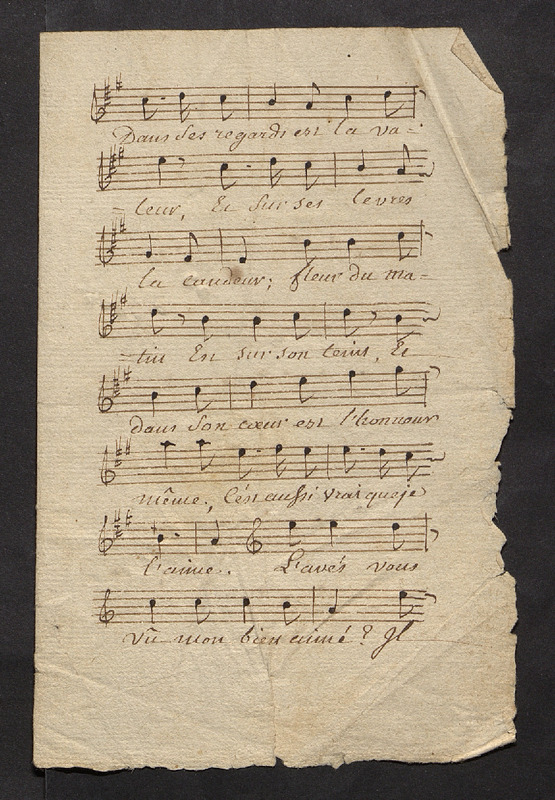 Dans ses regards est la va-
=leur, Et sur ses levres
la candeur; fleur du ma=
=tin Est sur son teint, Et
dans son cœur est l'honneur
même, C'est aussi vrai que je
l'aime. L'avés vous
vû mon bien aimé? Il